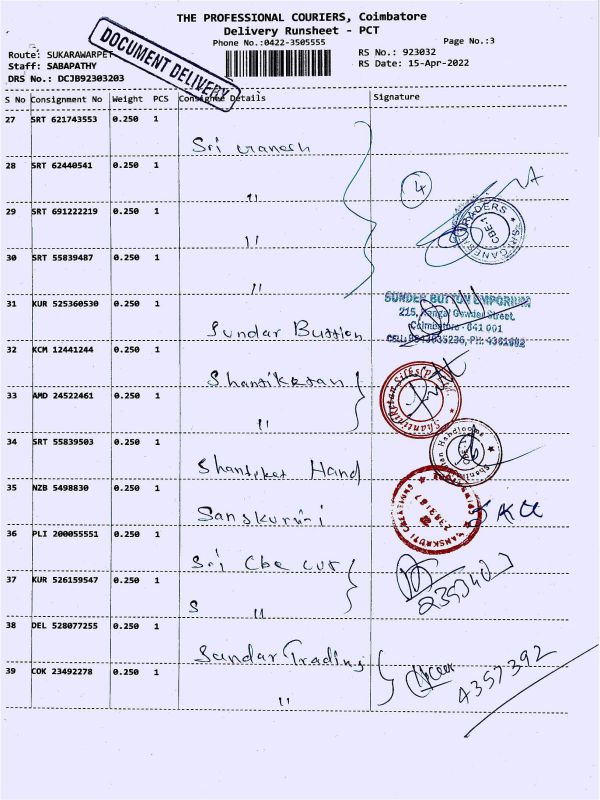 THE PROFESSIONAL COURIERS, Coimbatore
Delivery Runsheet - PCT
Phone No.:0422-3505555
Page No.:3
Route: SUKARAWARPET
Staff: SABAPATHY
DRS No.: DCJB92303203
DOCUMENT DELIVERY
RS No.: 923032
RS Date: 15-Apr-2022
S No Consignment No Weight PCS Consignee Details Signature
27 SRT 621743553 0.250 1
Sri Ganesh
28 SRT 62440541 0.250 1
"
4
29 SRT 691222219 0.250 1
"
SRI GANESH TRADERS ★ CBE-1 ★
30 SRT 55839487 0.250 1
"
31 KUR 525360530 0.250 1
Sundar Button
SUNDER BUTTON EMPORIUM
215, Street,
Coimbatore - 641 001
32 KCM 12441244 0.250 1
Shantiketan
33 AMD 24522461 0.250 1
"
34 SRT 55839503 0.250 1
Shantiket Hand
Handlooms
35 NZB 5498830 0.250 1
Sanskuruti
SANSKRUTI CREATIONS
36 PLI 200055551 0.250 1
Sri Cbe cut
37 KUR 526159547 0.250 1
S "
38 DEL 528077255 0.250 1
Sundar Trading
39 COK 23492278 0.250 1
"
4357392